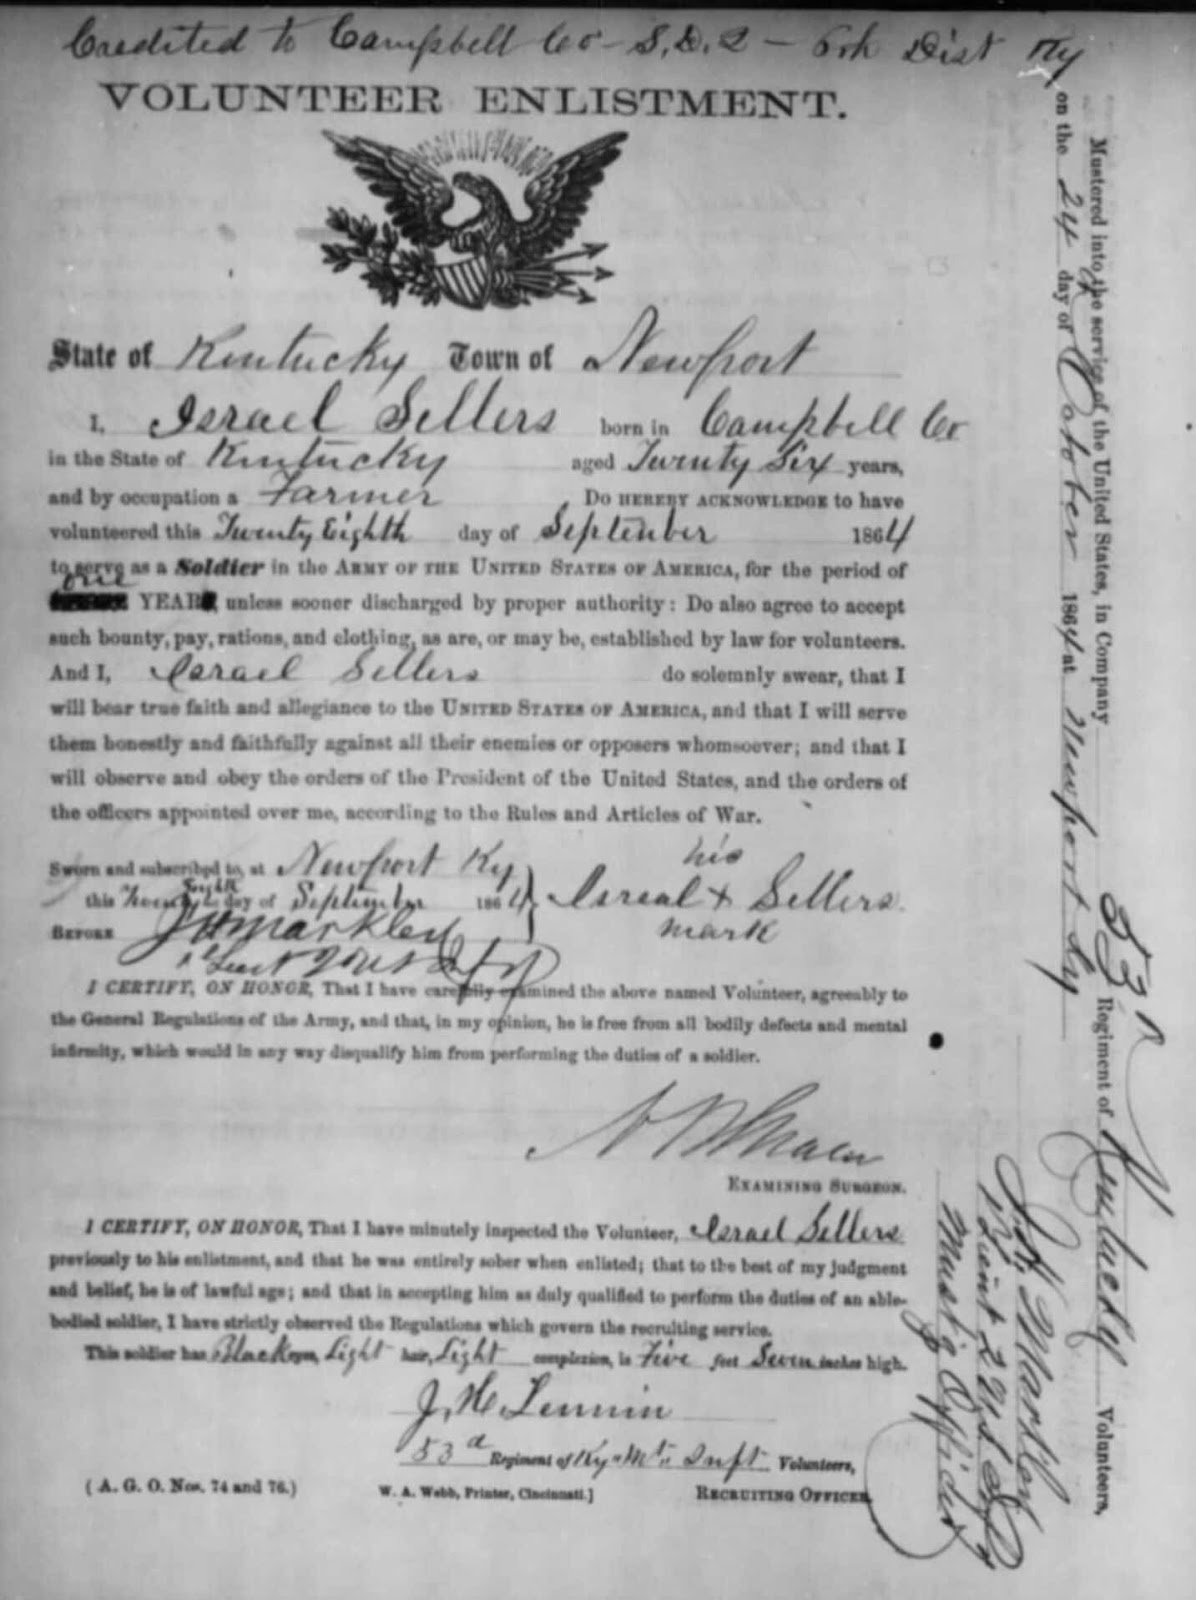 Credited to Campbell Co - S.D. 2 - 6th Dist Ky
VOLUNTEER ENLISTMENT.
State of Kentucky Town of Newport
I, Israel Sellers born in Campbell Co
in the State of Kentucky aged Twenty Six years,
and by occupation a Farmer Do HEREBY ACKNOWLEDGE to have
volunteered this Twenty Eighth day of September 1864
to serve as a Soldier in the ARMY OF THE UNITED STATES OF AMERICA, for the period of
one YEAR, unless sooner discharged by proper authority: Do also agree to accept
such bounty, pay, rations, and clothing, as are, or may be, established by law for volunteers.
And I, Israel Sellers do solemnly swear, that I
will bear true faith and allegiance to the UNITED STATES OF AMERICA, and that I will serve
them honestly and faithfully against all their enemies or opposers whomsoever; and that I
will observe and obey the orders of the President of the United States, and the orders of
the officers appointed over me, according to the Rules and Articles of War.
Sworn and subscribed to, at Newport Ky
this Twenty Eighth day of September 1864
BEFORE J H Markley
his
Isreal + Sellers
mark
I CERTIFY, ON HONOR, That I have carefully examined the above named Volunteer, agreeably to
the General Regulations of the Army, and that, in my opinion, he is free from all bodily defects and mental
infirmity, which would in any way disqualify him from performing the duties of a soldier.
EXAMINING SURGEON.
I CERTIFY, ON HONOR, That I have minutely inspected the Volunteer, Israel Sellers
previously to his enlistment, and that he was entirely sober when enlisted; that to the best of my judgment
and belief, he is of lawful age; and that in accepting him as duly qualified to perform the duties of an able-
bodied soldier, I have strictly observed the Regulations which govern the recruiting service.
This soldier has Black eyes, Light hair, Light complexion, is Five feet Seven inches high.
J. H. Lennin
53d Regiment of Ky Mt Inft Volunteers,
RECRUITING OFFICER
(A. G. O. Nos. 74 and 76.)
W. A. Webb, Printer, Cincinnati.]
Mustered into the service of the United States, in Company 53 Regiment of Kentucky Volunteers,
on the 24 day of October 1864 at Newport Ky
J. H. Markley
1 Lieut 21st
Must'g Officer